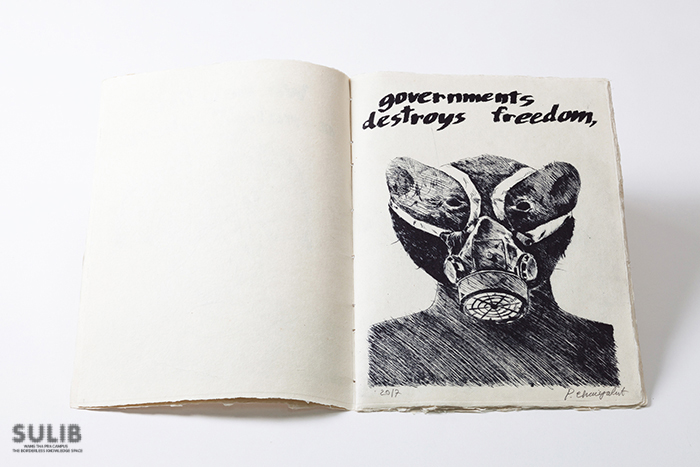 governments
destroys freedom,
2017
SULIB
WANG THA PRA CAMPUS
THE BORDERLESS KNOWLEDGE SPACE